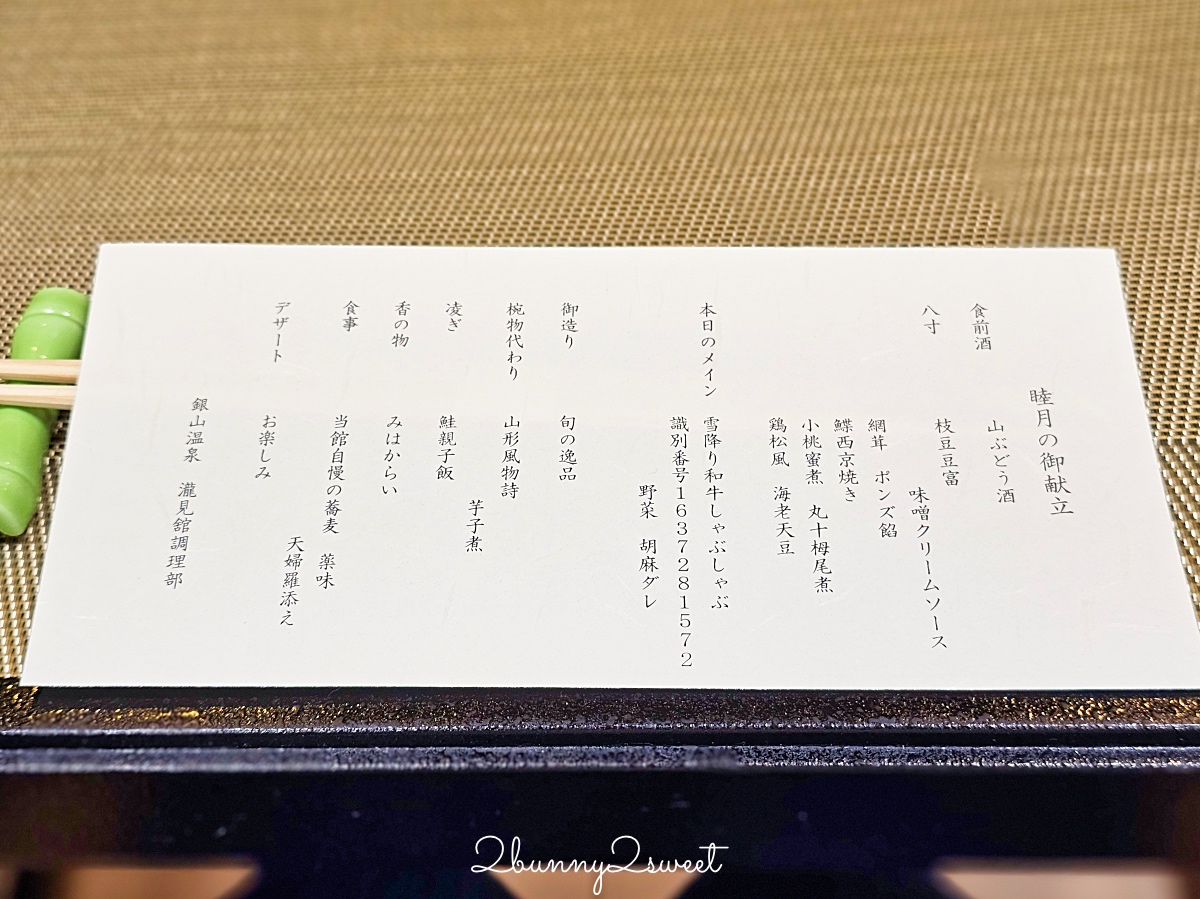 睦月の御献立
食前酒　山ぶどう酒
八寸　枝豆豆富
味噌クリームソース
網茸　ポンズ餡
鰈西京焼き
小桃蜜煮　丸十梔尾煮
鶏松風　海老天豆
本日のメイン　雪降り和牛しゃぶしゃぶ
識別番号１６３７２８１５７２
野菜　胡麻ダレ
御造り　旬の逸品
椀物代わり　山形風物詩
芋子煮
凌ぎ　鮭親子飯
香の物　みはからい
食事　当館自慢の蕎麦　薬味
天婦羅添え
デザート　お楽しみ
銀山温泉　瀧見舘調理部
2bunny2sweet